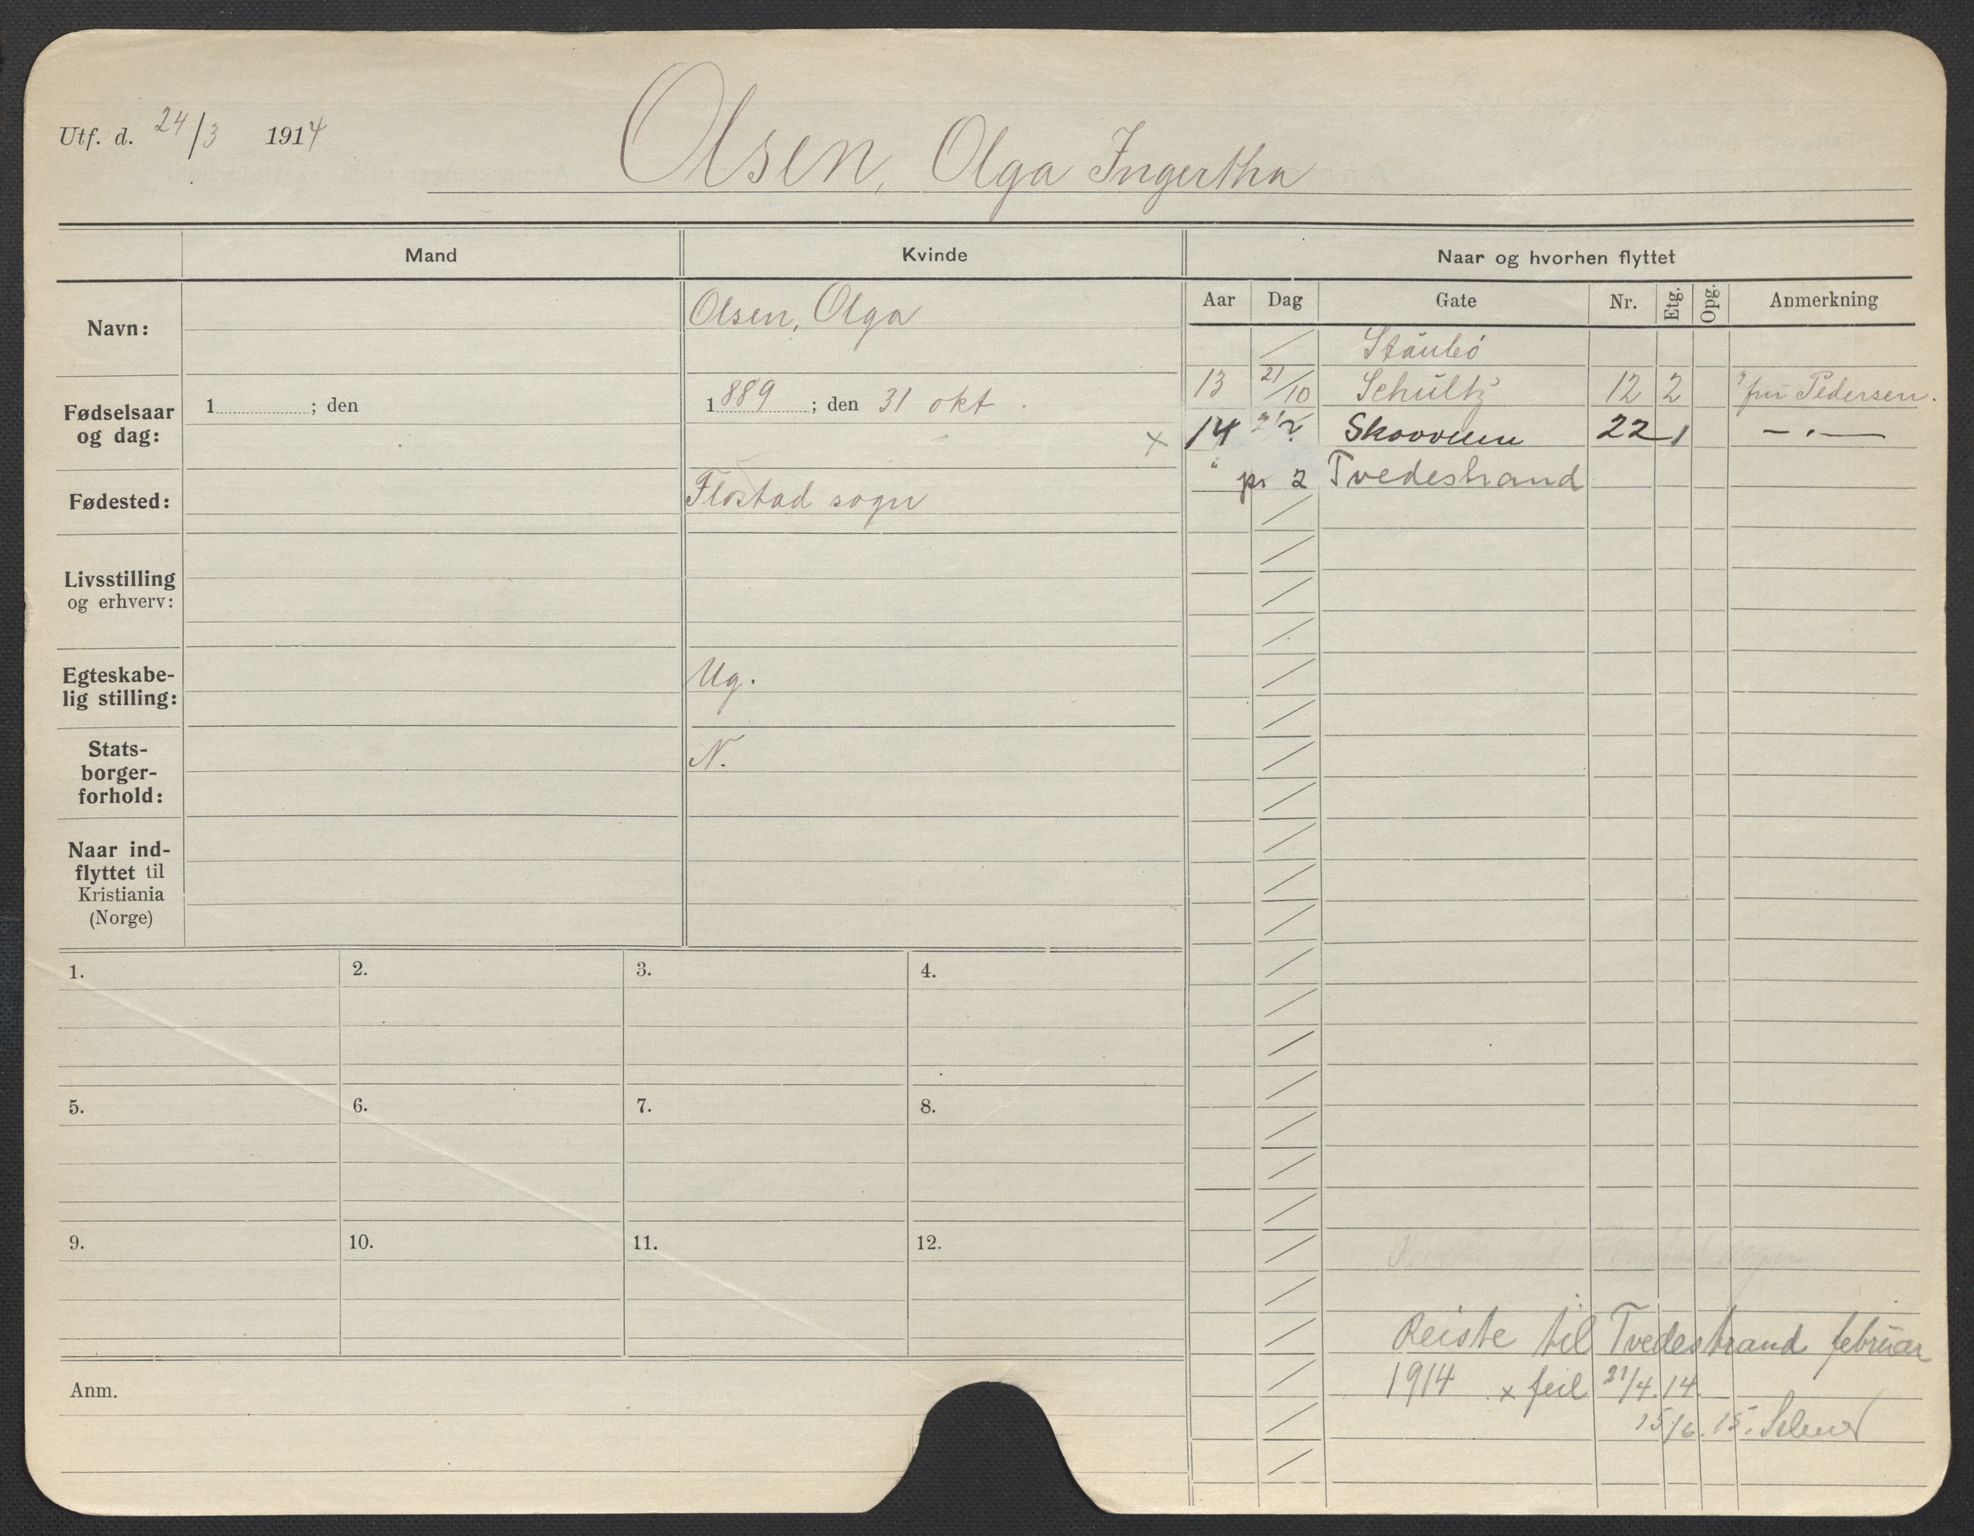 Utf. d. 24/3 1914
Olsen, Olga Ingertha
Mand
Kvinde
Naar og hvorhen flyttet
Navn:
Olsen, Olga
Fødselsaar
og dag:
1 ; den
1889 ; den 31 okt.
Fødested:
Flostad sogn
Livsstilling
og erhverv:
Egteskabe-
lig stilling:
Ug.
Stats-
borger-
forhold:
N.
Naar ind-
flyttet til
Kristiania
(Norge)
Aar Dag Gate Nr. Etg. Opg. Anmerkning
Staubö
13 21/10 Schultz' 12 2 fru Pedersen.
x 14 Skovveien 22 1 — " —
" pr 2 Tvedestrand
1. 2. 3. 4.
5. 6. 7. 8.
9. 10. 11. 12.
Anm.
Reiste til Tvedestrand februar
1914 x feil 21/4.14.
15/6.15.